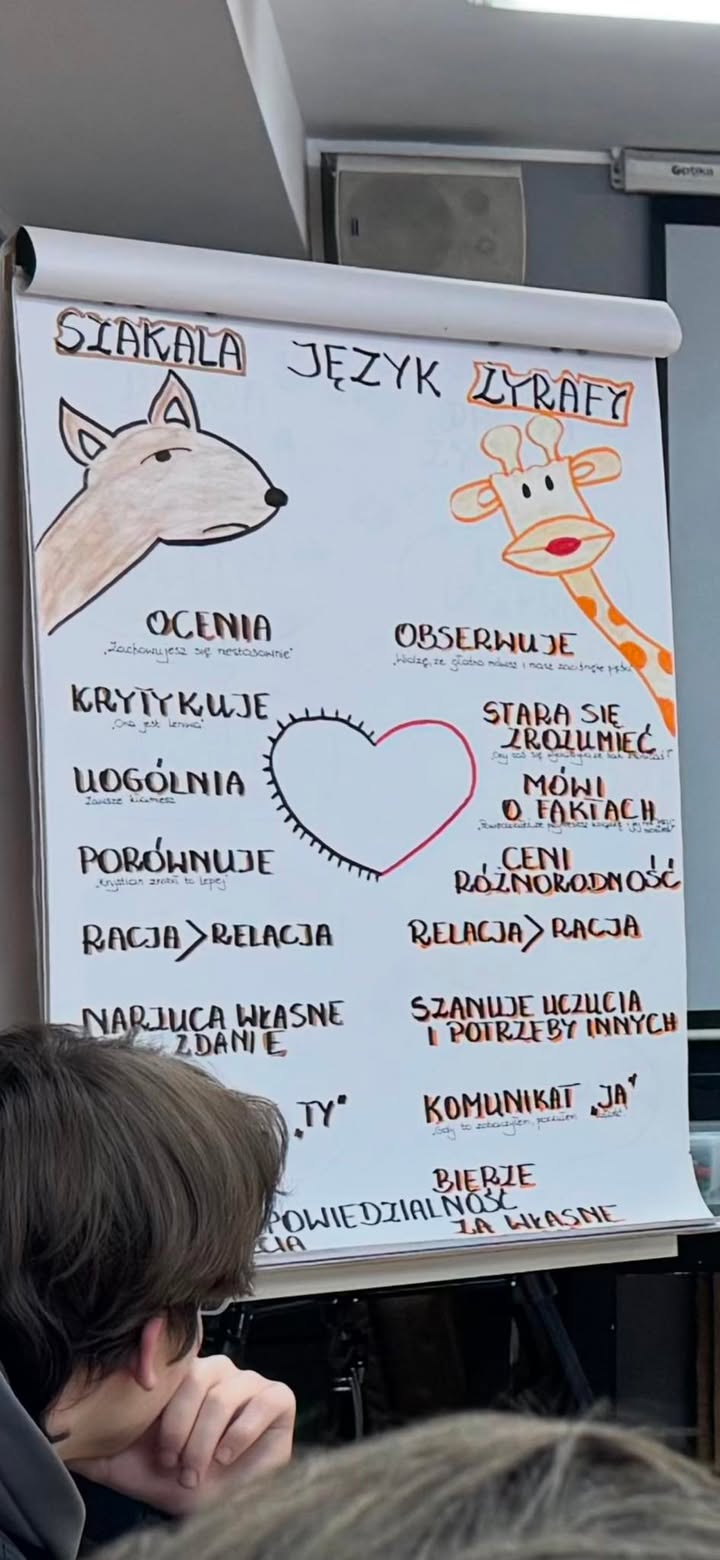 Gotika
SZAKALA JĘZYK ŻYRAFY
OCENIA
„Zachowujesz się niestosownie"
KRYTYKUJE
„Ona jest leniwa"
UOGÓLNIA
Zawsze kłamiesz
PORÓWNUJE
„Krystian zrobił to lepiej"
RACJA>RELACJA
NARZUCA WŁASNE
ZDANIE
„TY"
OBSERWUJE
„Widzę, że głośno mówisz i masz zaciśnięte pięści
STARA SIĘ
ZROZUMIEĆ
MÓWI
O FAKTACH
CENI
RÓŻNORODNOŚĆ
RELACJA>RACJA
SZANUJE UCZUCIA
I POTRZEBY INNYCH
KOMUNIKAT „JA"
„Gdy to zobaczyłem, poczułem złość"
BIERZE
POWIEDZIALNOŚĆ
ZA WŁASNE
CIA